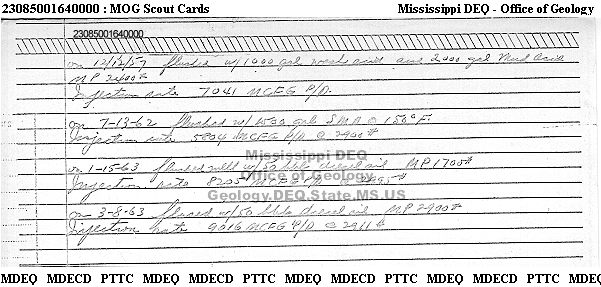 23085001640000 : MOG Scout Cards Mississippi DEQ - Office of Geology
23085001640000
on 12/12/57 flushed w/1000 gal wash acid and 2000 gal Mud Acid
MP 2400#
Injection rate 7041 MCFG P/D.
on 7-13-62 flushed w/1500 gal SMA @ 150°F.
Injection rate 5804 MCFG P/D @ 2900#
on 1-15-63 flushed well w/50 bbls diesel oil MP 1700#
Injection rate MCFG P/D @
on 3-8-63 flushed w/50 bbls diesel oil MP 2900#
Injection rate 9016 MCFG P/D @ 2911#
Mississippi DEQ
Office of Geology
Geology.DEQ.State.MS.US
MDEQ MDECD PTTC MDEQ MDECD PTTC MDEQ MDECD PTTC MDEQ MDECD PTTC MDEQ